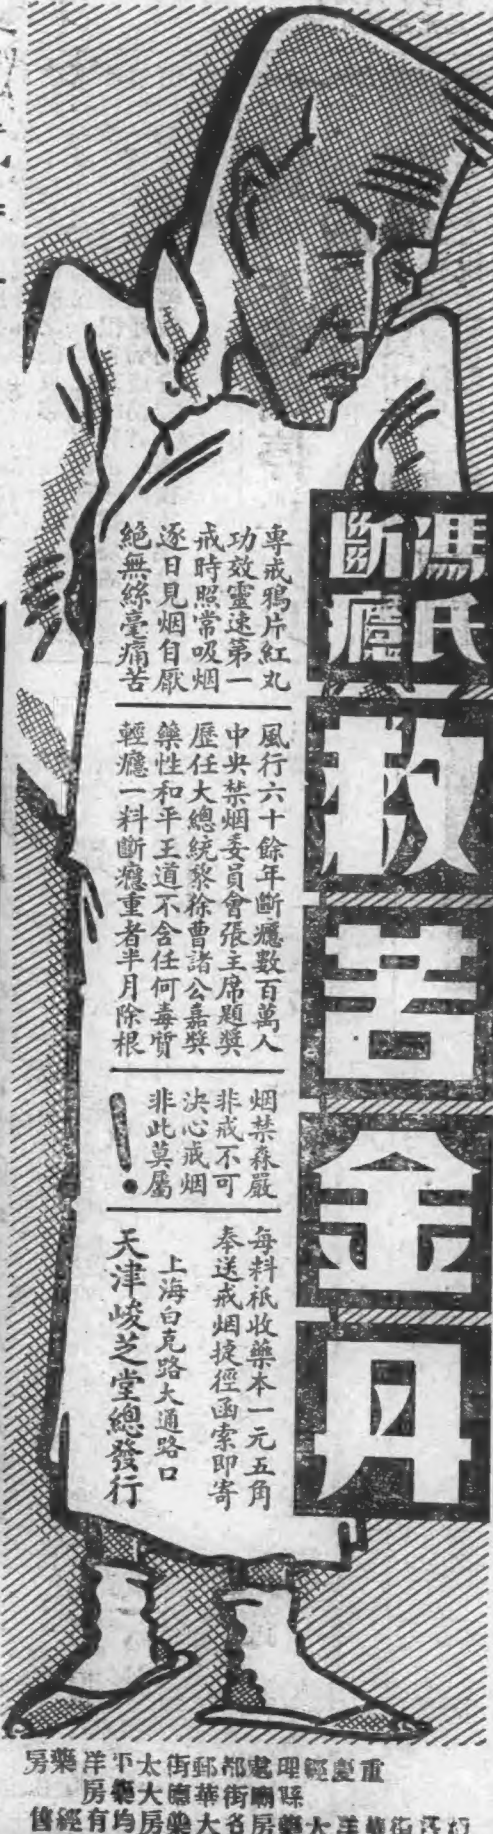 馮氏
斷癮
救苦金丹
專戒鴉片紅丸
功效靈速第一
戒時照常吸烟
逐日見烟自厭
絕無絲毫痛苦
風行六十餘年斷癮數百萬人
中央禁烟委員會張主席題獎
歷任大總統黎徐曹諸公嘉獎
藥性和平王道不含任何毒質
輕癮一料斷癮重者半月除根
烟禁森嚴
非戒不可
決心戒烟
非此莫屬
！
每料祇收藥本一元五角
奉送戒烟捷徑函索即寄
上海白克路大通路口
天津峻芝堂總發行
重慶經理處都郵街太平洋藥房